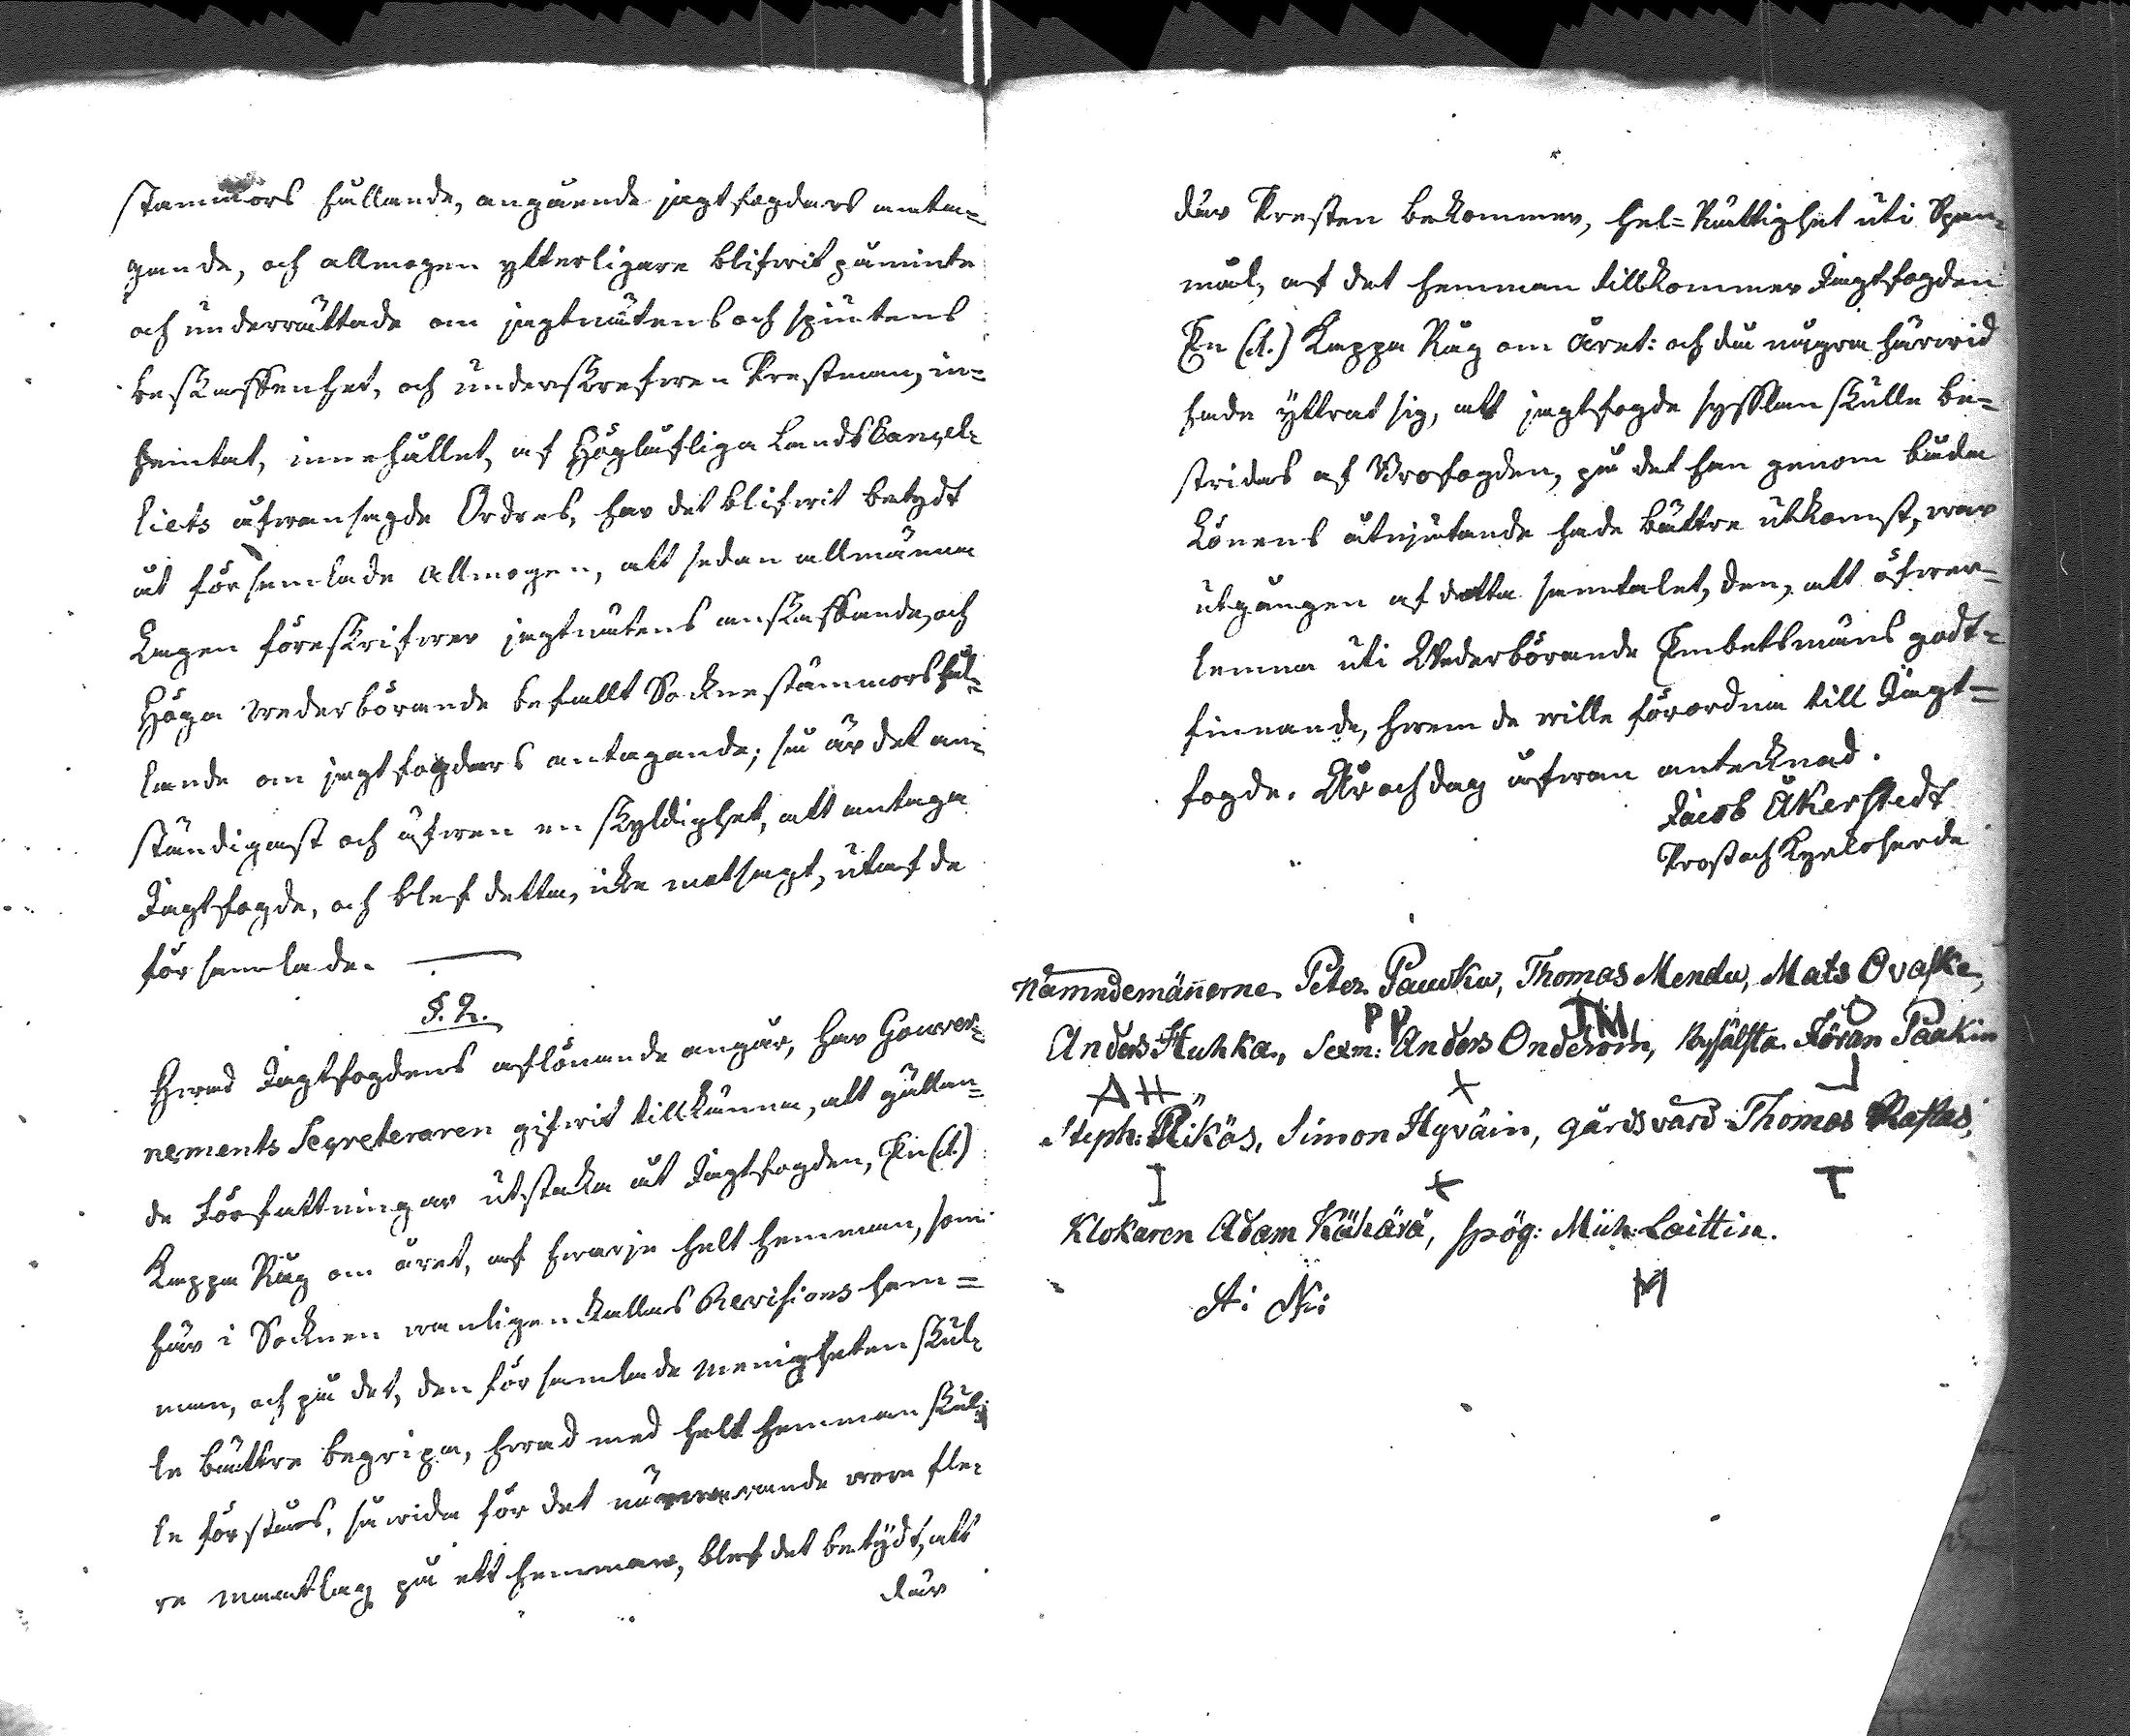 stammors hållande, angående jagtfogdars anta-
gande, och allmogen ytterligare blifwit påminte
och underrättade om jagtnätens och spjutens
beskaffenhet, och underskrefwen Prestman, in-
hemtat, innehållet, af Höglofliga Landskancel-
liets ofwansagde Ordres, har det blifwit betydt
åt församlade Allmogen, att sedan allmänna
Lagen föreskrifwer jagtnätens anskaffande, och
Höga wederbörande befallt Socknestämmors hål-
lande om jagtfogdars antagande; så är det an-
ständigast och äfwen en skyldighet, att antaga
Jagtfogde, och blef detta, icke motsagt, utaf de
församlade.
§. 2.
Hwad Jagtfogdens aflönande angår, har Gouver-
nements Secreteraren gifwit tillkänna, att gällan-
de Författningar utstaka åt Jagtfogden, En (1.)
Kappa Råg om året, af hwarje helt hemman, som
här i Socknen wanligen kallas Revisions hem-
man, och på det, den församlade menigheten skul-
le bättre begripa, hwad med helt hemman skul-
le förstås, såwida för det närwarande woro fle-
re matlag på ett hemman, blef det betydt, att
där
där Presten bekommer, hel-Rättighet uti Span-
mål, af det hemman tillkommer Jagtfogden
En (1.) Kappa Råg om året: och då några härwid
hade yttrat sig, att jagtfogde sysslan skulle be-
stridas af Brofogden, på det han genom båda
Lönens åtnjutande hade bättre utkomst, war
utgången af detta samtalet, den, att öfwer-
lemna uti Wederbörande Embetsmäns godt-
finnande, hwem de wille förordna till Jagt-
fogde. År och dag ofwan antecknad.
Jacob Åkerstedt
Prost och Kyrkoherde
Nämndemännerne. Peter Paucku, Thomas Mendu, Mats Ovaska,
PP TM
Anders Huhka, Sexm: Anders Onderoin, Göran Paakin
AH X
Steph: Rikös, Simon Hyväin, gårdsvärd Thomas Raskas,
I X T
Klokaren Adam Kähärä, spög: Mich: Laittin.
A: K: M